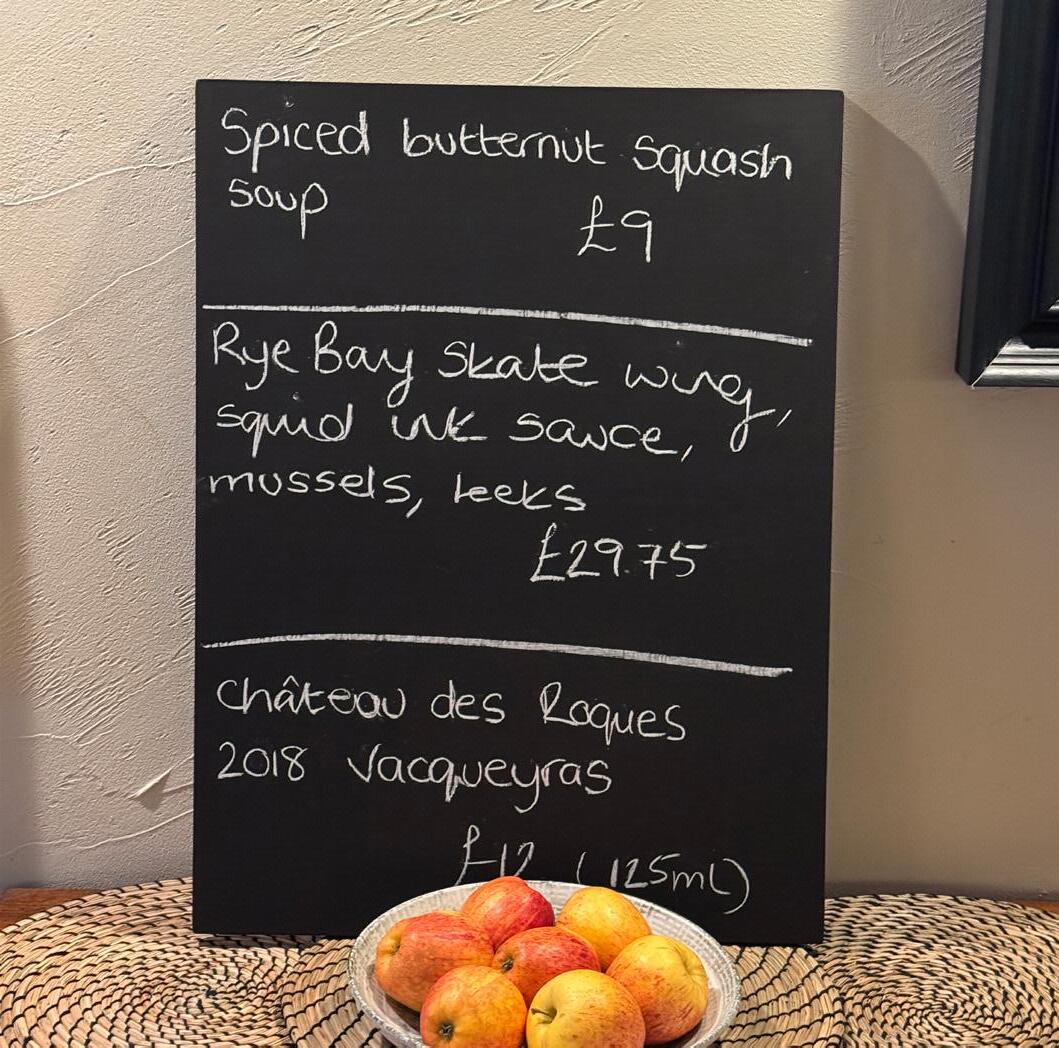 Spiced butternut squash
soup
£9
Rye Bay Skate wing,
squid ink sauce,
mussels, leeks
£29.75
Château des Roques
2018 Vacqueyras
£12 (125ml)